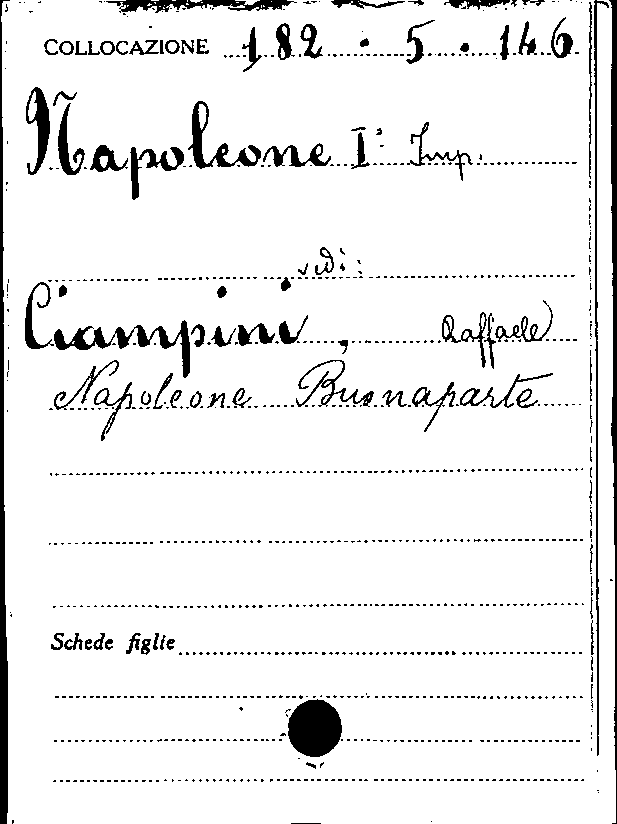 COLLOCAZIONE 182 . 5 . 146
Napoleone I° Imp.
vedi:
Ciampini, Raffaele
Napoleone Buonaparte
Schede figlie